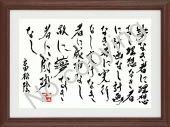 夢なき者に理想
なし理想なき者
に計画なし計画
なき者に実行
なし実行なき
者に成功なし
故に夢なき
者に成功
なし
吉田松陰
No Copying